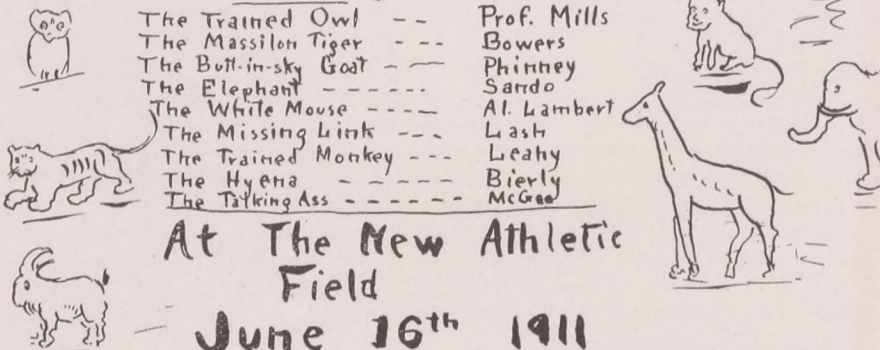 The Trained Owl -- Prof. Mills
The Massilon Tiger --- Bowers
The Butt-in-sky Goat -- Phinney
The Elephant ------ Sando
The White Mouse ----- Al. Lambert
The Missing Link --- Lash
The Trained Monkey --- Leahy
The Hyena ------ Bierly
The Talking Ass ------- McGee
At The New Athletic
Field
June 16th 1911